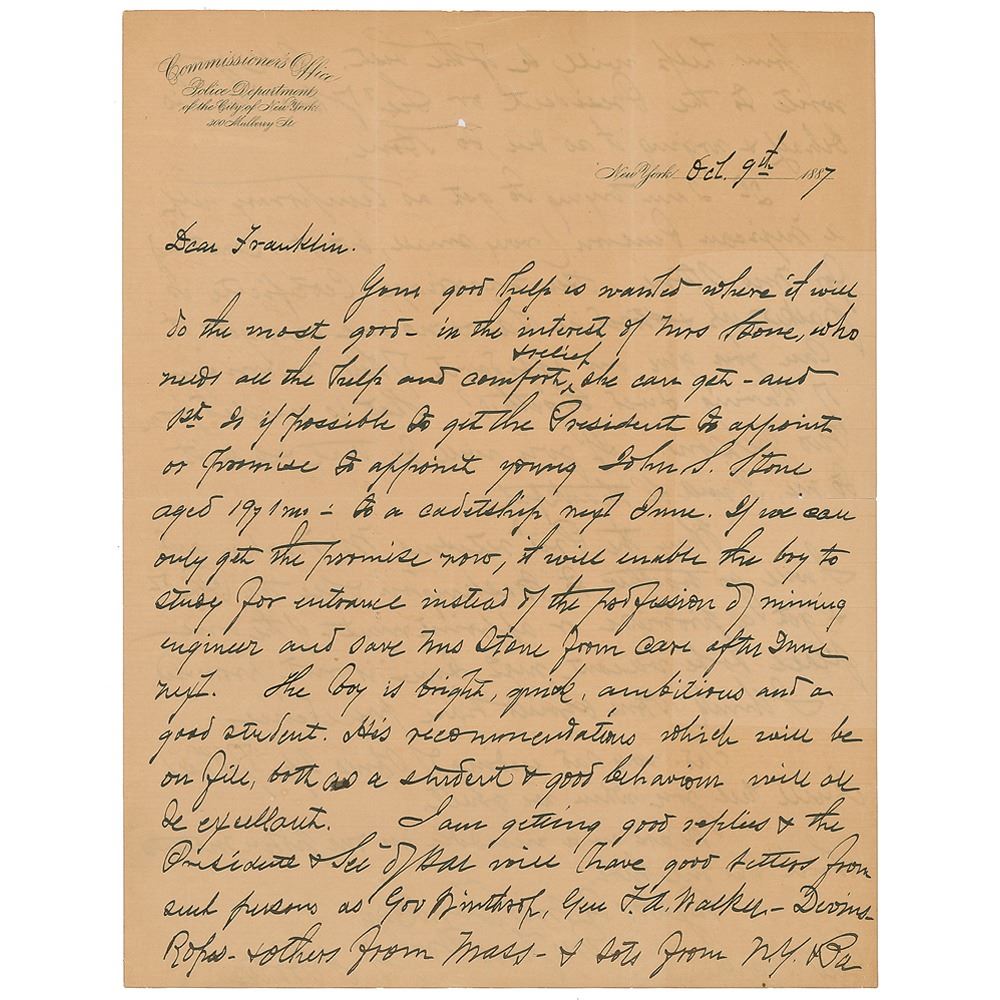 Commissioner's Office
Police Department
of the City of New York
300 Mulberry St
New York Oct. 9th 1887
Dear Franklin.
Your good help is wanted where it will
do the most good - in the interest of Mrs Stone, who
& relief
needs all the help and comfort, she can get - and
1st Is if possible to get the President to appoint
or promise to appoint young John S. Stone
aged 19 y 1 mo - to a cadetship next June. If we can
only get the promise now, it will enable the boy to
study for entrance instead of the profession of mining
engineer and save Mrs Stone from care after June
next. The boy is bright, quick, ambitious and a
good student. His recommendations which will be
on file, both as a student & good behaviour will all
be excellant. I am getting good replies & the
President & Sec of War will have good letters from
such persons as Gov Winthrop, Gen F. A. Walker, - Devins -
Ropes - & others from Mass - & lots from N.Y. & Pa